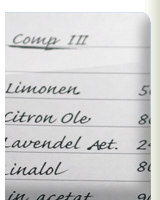 Comp III
Limonen 5
Citron Ole 8
Lavendel Aet. 2
Linalol 8
Lin. acetat 9